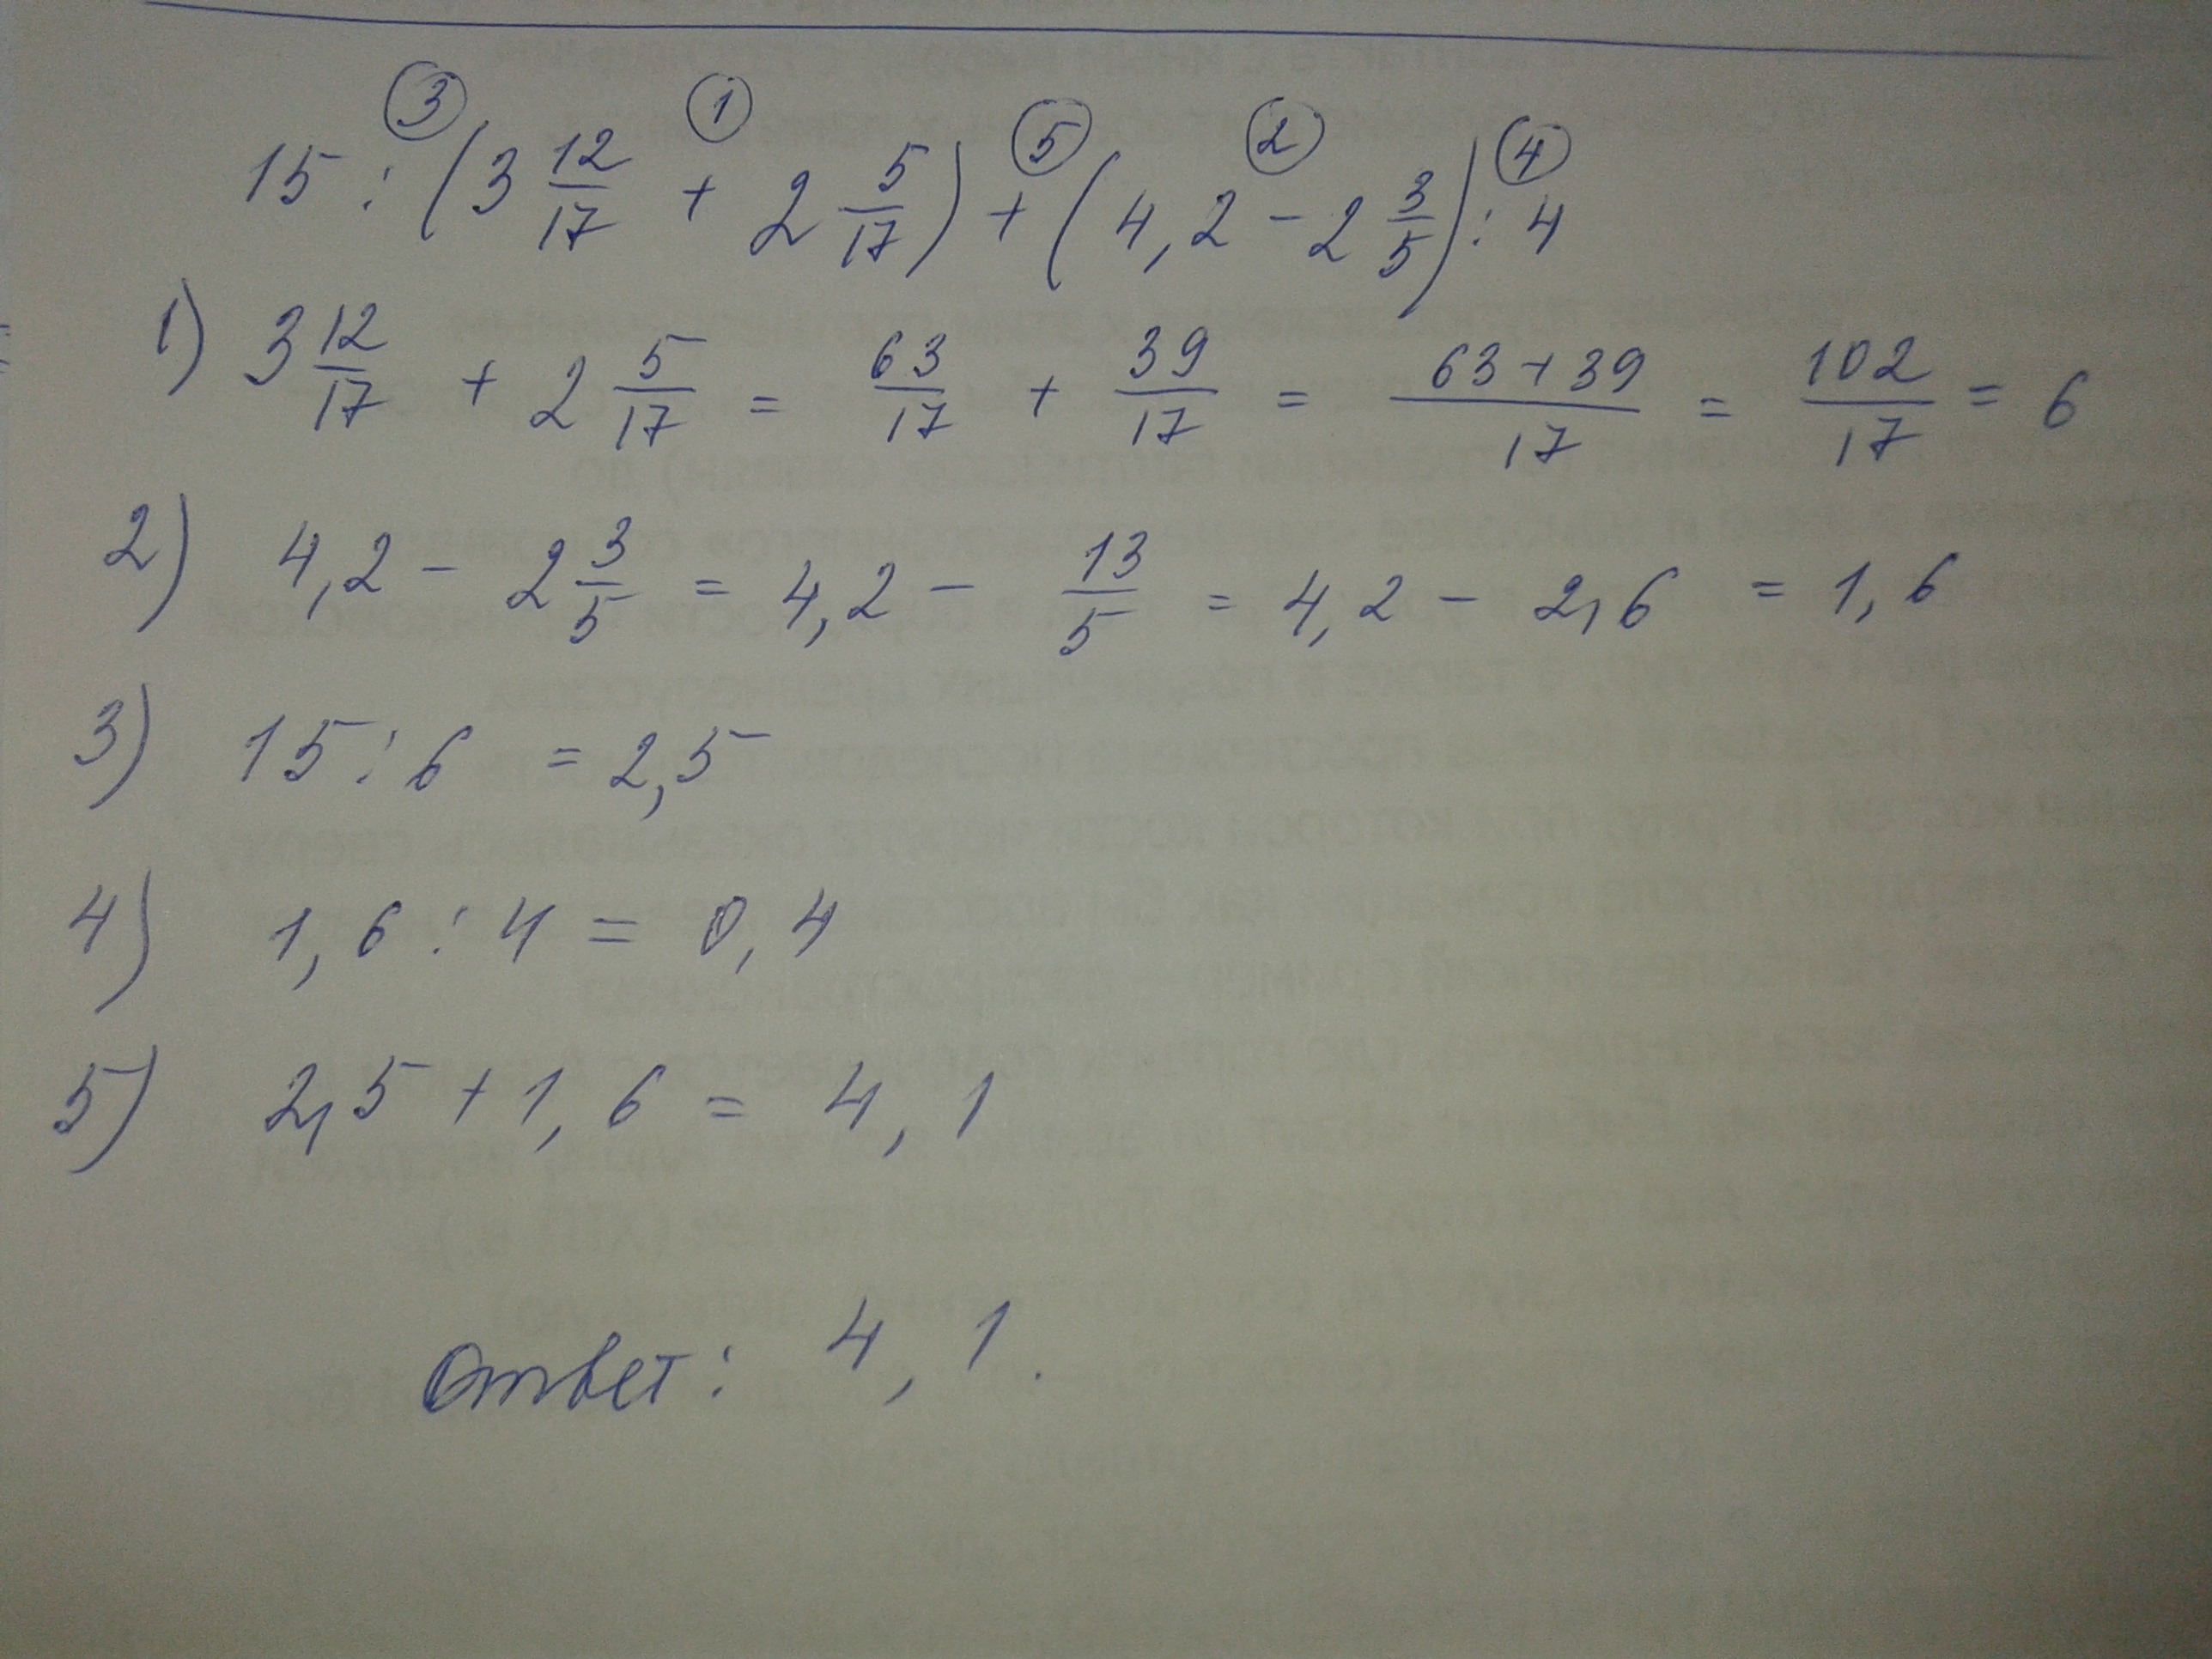 ③ ① ⑤ ② ④
15 : (3 12/17 + 2 5/17) + (4,2 - 2 3/5) : 4
1) 3 12/17 + 2 5/17 = 63/17 + 39/17 = 63+39/17 = 102/17 = 6
2) 4,2 - 2 3/5 = 4,2 - 13/5 = 4,2 - 2,6 = 1,6
3) 15 : 6 = 2,5
4) 1,6 : 4 = 0,4
5) 2,5 + 1,6 = 4,1
Ответ: 4,1.